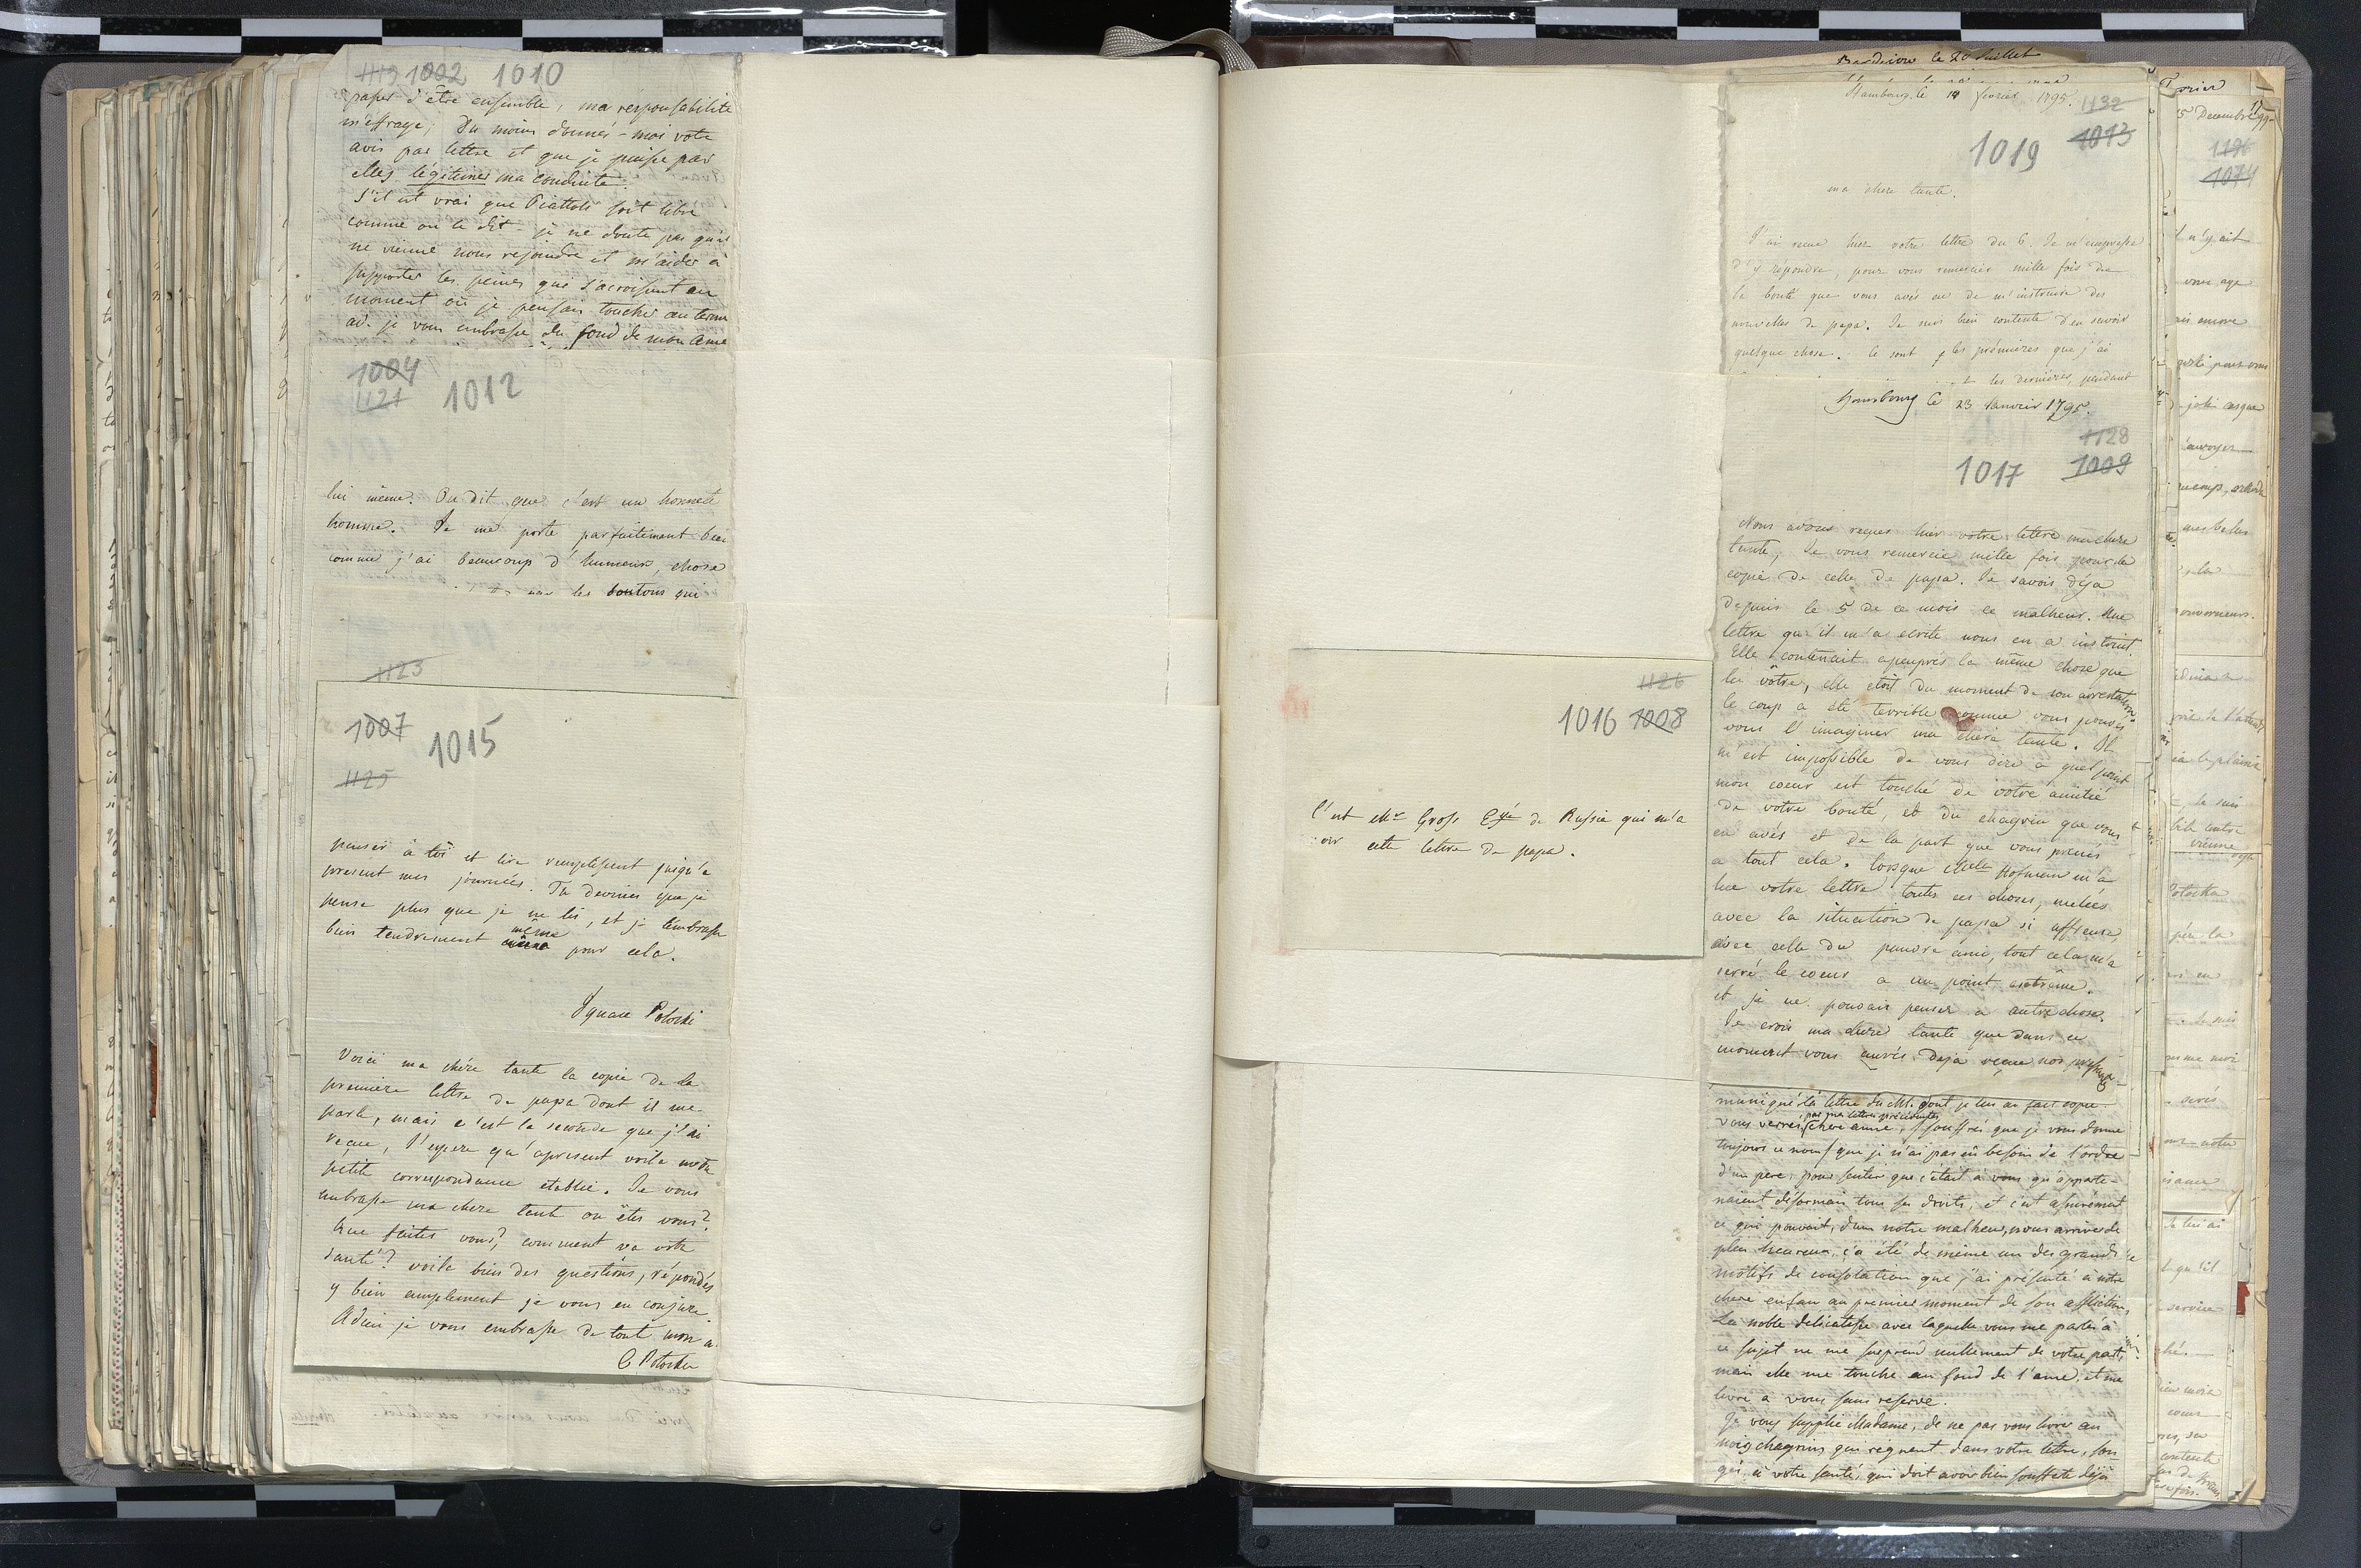 1119 1002 1010
passer d'être ensemble, ma responsabilité
m'effraye; Du moins donnés-moi votre
avis par lettre et que je puisse par
elles légitimer ma conduite.
S'il est vrai que Piattoli soit libre
comme on le dit - je ne doute pas qu'il
ne vienne nous rejoindre et m'aider à
supporter les peines qui s'acroissent au
moment où je pensais toucher au terme
ad. je vous embrasse du fond de mon ame
1004
1121 1012
lui même. On dit que c'est un honnete
homme. Je me porte parfaitement bien
comme j'ai beaucoup d'humeurs, chose
les boutons qui
1123
1007 1015
1125
penser à toi et lire remplissent jusqu'a
present mes journées. Tu devines que je
pense plus que je ne lis, et je t'embrasse
bien tendrement même pour cela.
Ignace Potocki
Voici ma chére tante la copie de la
premiere lettre de papa dont il me
parle, mais c'est la seconde que j'ai
reçue, J'espere qu'apresent voila notre
petite correspondance etablie. Je vous
embrasse ma chere tante ou êtes vous?
que faites vous? comment va votre
santé? voila bien des questions, répondés
y bien amplement je vous en conjure.
Adieu je vous embrasse de tout mon
C Potocka
1126
1016 1008
C'est Mr Gross de Russie qui m'a
cette lettre de papa.
Bardiow le 20 Juillet
Hambourg le 14 fevrier 1795. 1132
1019 1013
ma chere tante.
J'ai reçue hier votre lettre du 6. Je m'empresse
d'y répondre, pour vous remercier mille fois de
la bonté que vous avés eu de m'instruire des
nouvelles de papa. Je suis bien contente d'en savoir
quelque chose. Ce sont les prémières que j'ai
les dernieres, pendant
Hambourg le 23 Janvier 1795.
1128
1017 1009
Nous avons reçues hier votre lettre ma chere
tante, Je vous remercie mille fois pour la
copie de celle de papa. Je savois déja
depuis le 5 de ce mois ce malheur. Une
lettre qu'il m'a ecrite nous en a instruit.
Elle contenait apeuprés la même chose que
la vôtre, elle etoit du moment de son arrestation.
le coup a été terrible comme vous pouvés
vous l'imaginer ma chere tante. Il
m'est impossible de vous dire a quel point
mon coeur est touché de votre amitié
de votre bonté, et du chagrin que vous
en avés et de la part que vous prenés
a tout cela. lorsque Melle Hofman m'a
lue votre lettre toutes ces choses, melées
avec la situation de papa si affreuse,
avec celle du pauvre ami, tout cela m'a
serré le coeur a un point extrême.
et je ne pouvais penser a autre chose.
Je crois ma chere tante que dans ce
moment vous aurés deja reçue nos
muniqué la lettre du M. dont je lui ai fait copie.
par ma lettre précédente
vous verrés chere amie, souffrés que je vous donne
toujours ce nom que je n'ai pas eû besoin de l'ordre
d'un pere, pour sentir que c'étoit à vous qu'apparte-
naient désormais tous ses droits, et c'est assurément
ce qui pouvait, dans notre malheur, nous arriver de
plus heureux, ç'a été de même un des grands
motifs de consolation que j'ai présenté à notre
chere enfan au premier moment de son affliction,
La noble délicatesse avec laquelle vous me parlés à
ce sujet ne me surprend nullement de votre part,
mais elle me touche au fond de l'ame, et me
livre a vous sans reserve.
Je vous supplie Madame, de ne pas vous livrer au
noirs chagrins qui regnent dans votre lettre, son-
gés à votre santé, qui doit avoir bien souffete déjà
5 Decembre
1196
1074
il n'y ait
encore
envoyer
mes belles
Potocka
Je suis
contente